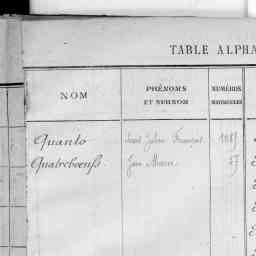 TABLE ALPHA
NOM
PRÉNOMS
ET SURNOM
NUMÉROS
MATRICULES
Quanto Jules François
Quatreboeufs Jean Marie 57